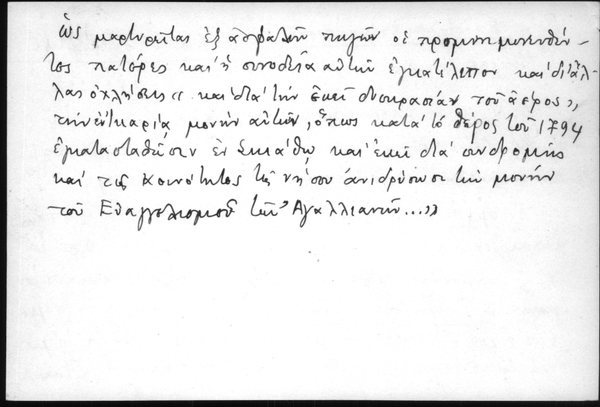 ὡς μαρτυρεῖται ἐξ ἀσφαλῶν πηγῶν οἱ προμνημονευθέν-
τες πατέρες καὶ ἡ συνοδεία αὐτῶν ἐγκατέλειπον καὶ δι' ἀλ-
λας ὀχλήσεις « καὶ διὰ τὴν ἐκεῖ δυσκρασίαν τοῦ ἀέρος »,
τὴν ἐν Ἰκαρίᾳ μονὴν αὐτῶν, ὅπως κατὰ τὸ θέρος τοῦ 1794
ἐγκατασταθῶσιν ἐν Σκιάθῳ καὶ ἐκεῖ διὰ συνδρομῆς
καὶ τῆς Κοινότητος τῆς νήσου ἀνιδρύσωσι τὴν μονὴν
τοῦ Εὐαγγελισμοῦ τῶν Ἀγαλλιανῶν...»